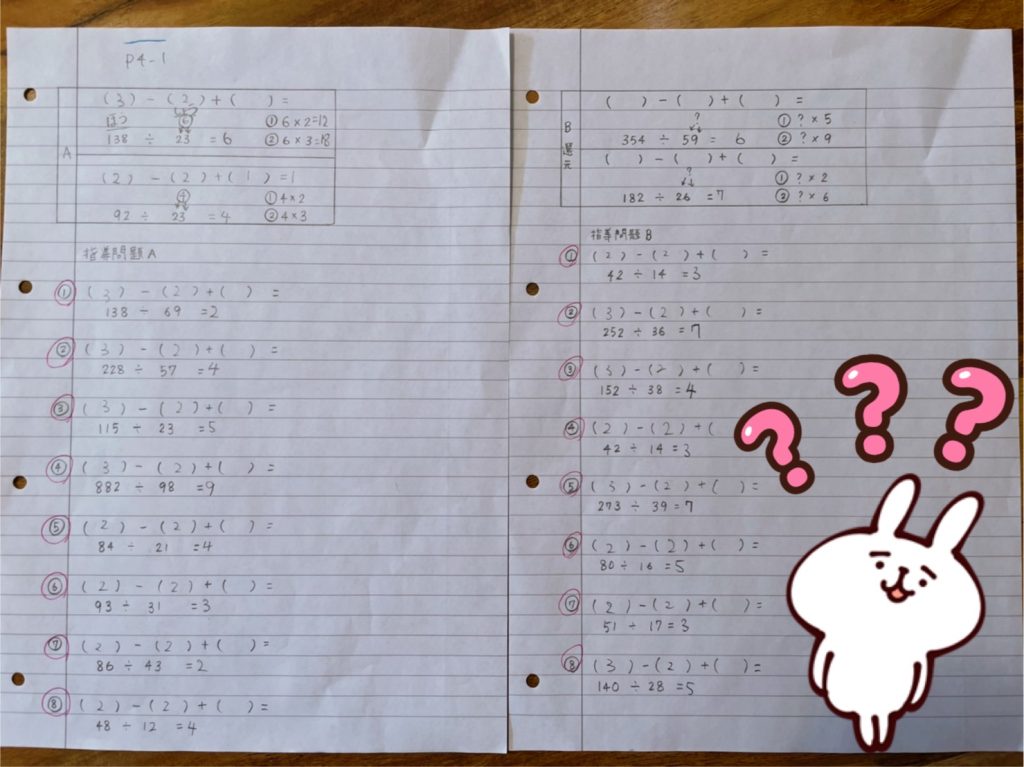 P4-1
(3) - (2) + ( ) =
138 ÷ 23 = 6
① 6×2=12
② 6×3=18
A
(2) - (2) + (1) = 1
④
92 ÷ 23 = 4
① 4×2
② 4×3
指導問題 A
① (3) - (2) + ( ) =
138 ÷ 69 = 2
② (3) - (2) + ( ) =
228 ÷ 57 = 4
③ (3) - (2) + ( ) =
115 ÷ 23 = 5
④ (3) - (2) + ( ) =
882 ÷ 98 = 9
⑤ (2) - (2) + ( ) =
84 ÷ 21 = 4
⑥ (2) - (2) + ( ) =
93 ÷ 31 = 3
⑦ (2) - (2) + ( ) =
86 ÷ 43 = 2
⑧ (2) - (2) + ( ) =
48 ÷ 12 = 4
( ) - ( ) + ( ) =
?
354 ÷ 59 = 6
① ?×5
② ?×9
B 還元
( ) - ( ) + ( ) =
?
182 ÷ 26 = 7
① ?×2
② ?×6
指導問題 B
① (2) - (2) + ( ) =
42 ÷ 14 = 3
② (3) - (2) + ( ) =
252 ÷ 36 = 7
③ (3) - (2) + ( ) =
152 ÷ 38 = 4
④ (2) - (2) + (
42 ÷ 14 = 3
⑤ (3) - (2) + ( ) =
273 ÷ 39 = 7
⑥ (2) - (2) + ( ) =
80 ÷ 16 = 5
⑦ (2) - (2) + ( ) =
51 ÷ 17 = 3
⑧ (3) - (2) + ( ) =
140 ÷ 28 = 5
???